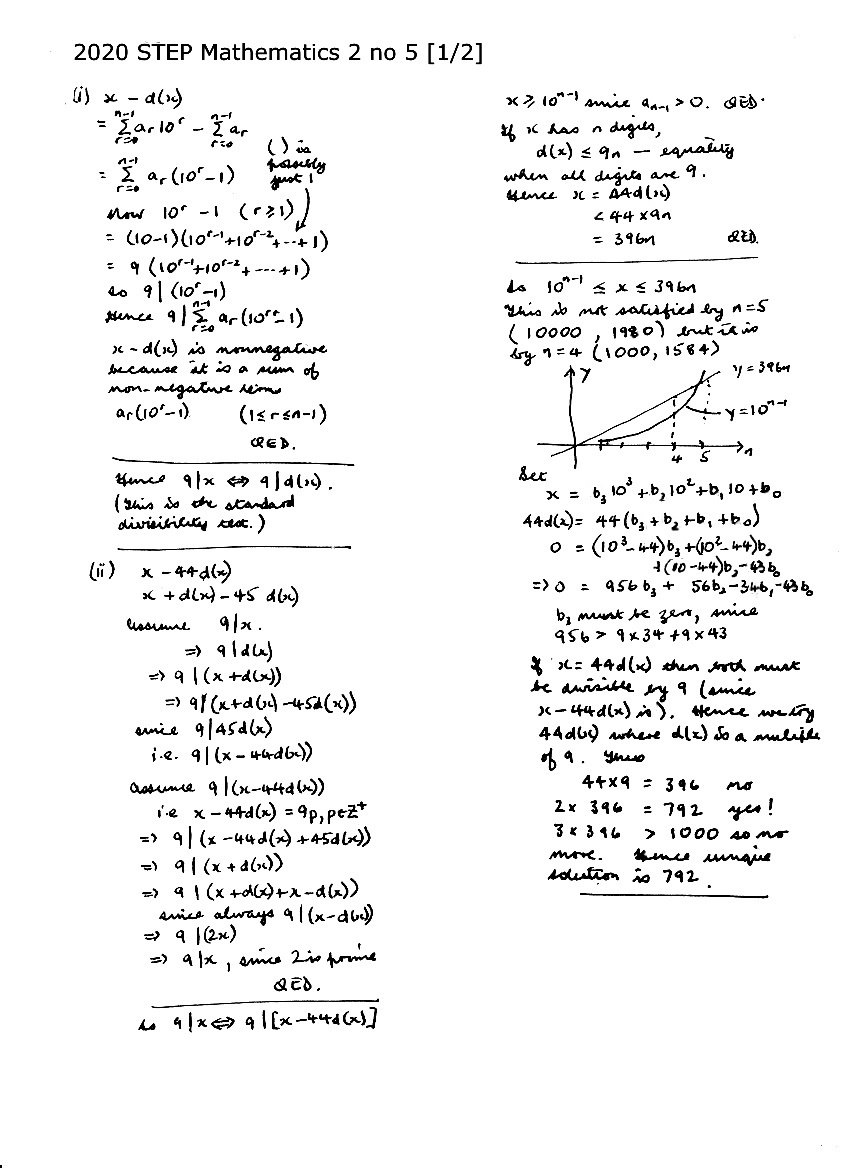 2020 STEP Mathematics 2 no 5 [1/2]
(i) x - d(x)
= Σ_{r=0}^{n-1} a_r 10^r - Σ_{r=0}^{n-1} a_r
= Σ_{r=0}^{n-1} a_r (10^r - 1)
( ) is
possibly
just 1
Now 10^r - 1 (r ≥ 1)
= (10-1)(10^{r-1} + 10^{r-2} + --- + 1)
= 9 (10^{r-1} + 10^{r-2} + --- + 1)
so 9 | (10^r - 1)
Hence 9 | Σ_{r=0}^{n-1} a_r (10^r - 1)
x - d(x) is nonnegative
because it is a sum of
non-negative terms
a_r (10^r - 1) (1 ≤ r ≤ n-1)
QED.
Hence 9 | x ⇔ 9 | d(x).
(This is the standard
divisibility test.)
(ii) x - 44d(x)
x + d(x) - 45 d(x)
Assume 9 | x.
⇒ 9 | d(x)
⇒ 9 | (x + d(x))
⇒ 9 | (x + d(x) - 45d(x))
since 9 | 45d(x)
i.e. 9 | (x - 44d(x))
Assume 9 | (x - 44d(x))
i.e x - 44d(x) = 9p, p∈Z^+
⇒ 9 | (x - 44d(x) + 45d(x))
⇒ 9 | (x + d(x))
⇒ 9 | (x + d(x) + x - d(x))
since always 9 | (x - d(x))
⇒ 9 | (2x)
⇒ 9 | x, since 2 is prime
QED.
So 9 | x ⇔ 9 | [x - 44d(x)]
x ≥ 10^{n-1} since a_{n-1} > 0. QED.
If x has n digits,
d(x) ≤ 9n — equality
when all digits are 9.
Hence x = 44d(x)
< 44 × 9n
= 396n QED.
So 10^{n-1} ≤ x ≤ 396n
This is not satisfied by n = 5
(10000, 1980) but it is
by n = 4 (1000, 1584)
y
y = 396n
y = 10^{n-1}
4 5 n
Let
x = b_3 10^3 + b_2 10^2 + b_1 10 + b_0
44d(x) = 44 (b_3 + b_2 + b_1 + b_0)
0 = (10^3 - 44)b_3 + (10^2 - 44)b_2
+ (10 - 44)b_1 - 43b_0
⇒ 0 = 956 b_3 + 56b_2 - 34b_1 - 43b_0
b_3 must be zero, since
956 > 9 × 34 + 9 × 43
If x = 44d(x) then both must
be divisible by 9 (since
x - 44d(x) is). Hence we try
44d(x) where d(x) is a multiple
of 9. Thus
44 × 9 = 396 no
2 × 396 = 792 yes!
3 × 396 > 1000 so no
more. Hence unique
solution is 792.